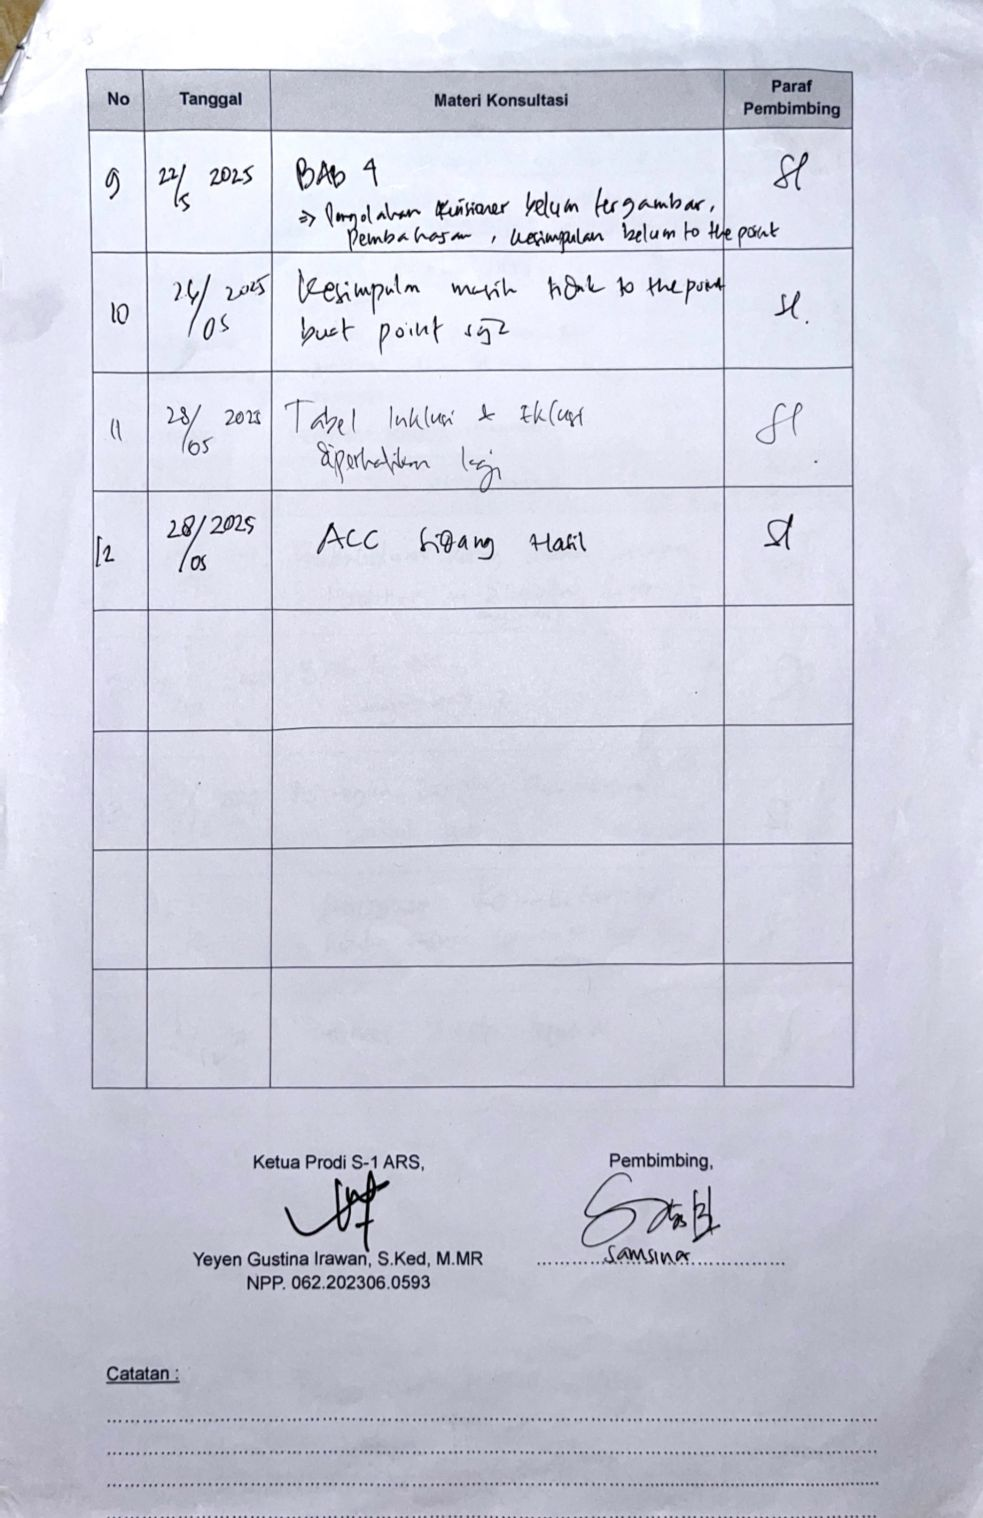 No Tanggal Materi Konsultasi Paraf Pembimbing
9 22/5 2025 BAB 4
⇒ Pengolahan kuisioner belum tergambar,
Pembahasan, kesimpulan belum to the point
10 26/05 2025 Kesimpulan masih tidak to the point
buat point
11 28/05 2025 Tabel Inklusi & Eklusi
diperhatikan lagi
12 28/05 2025 ACC Sidang Hasil
Ketua Prodi S-1 ARS, Pembimbing,
Yeyen Gustina Irawan, S.Ked, M.MR Samsinar
NPP. 062.202306.0593
Catatan :